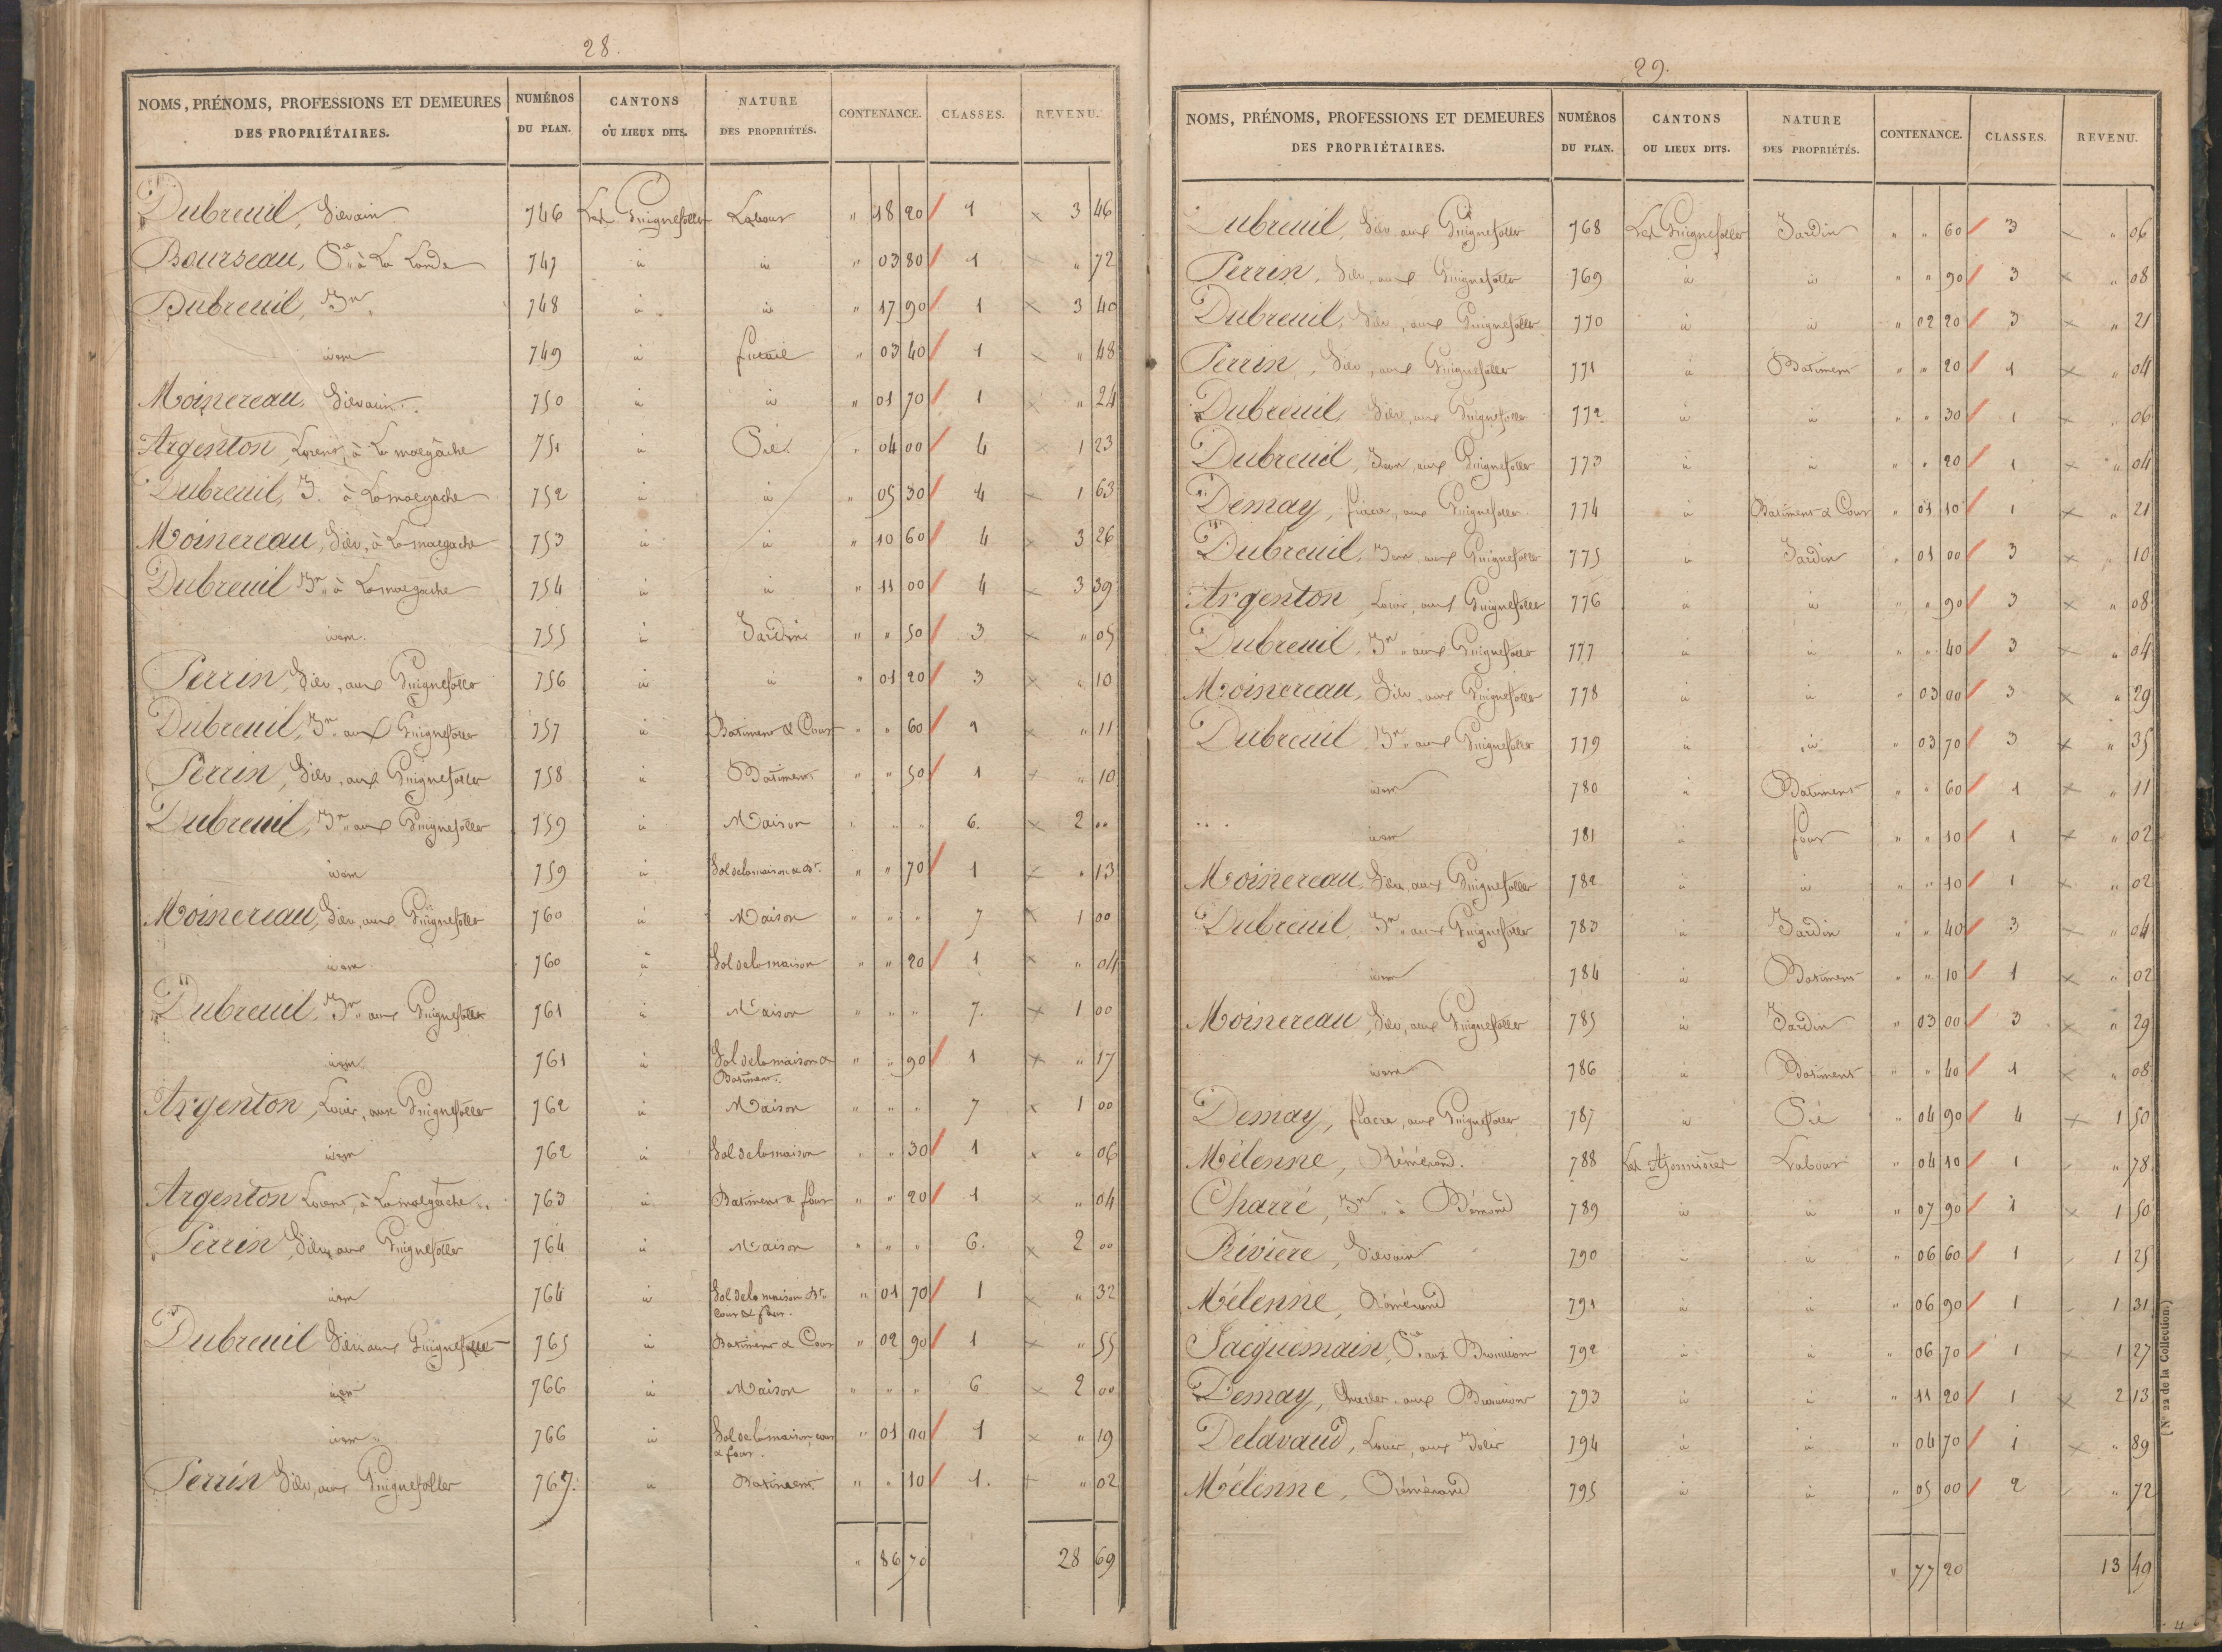 28.
NOMS, PRÉNOMS, PROFESSIONS ET DEMEURES DES PROPRIÉTAIRES. NUMÉROS DU PLAN. CANTONS OU LIEUX DITS. NATURE DES PROPRIÉTÉS. CONTENANCE. CLASSES. REVENU.
Dubreuil, Silvain 746 Les Guignefolles Labour " 18 20 1 3 46
Bourseau, à La Lande 747 id id " 03 80 1 " 72
Dubreuil, Jn 748 id id " 17 90 1 3 40
idem 749 id futaie " 03 40 1 " 48
Moinereau, Silvain 750 id id " 01 70 1 " 24
Argenton, Lorent, à La malgâche 751 id Pré " 04 00 4 1 23
Dubreuil, J. à La malgache 752 id id " 05 30 4 1 63
Moinereau, Silv, à La malgache 753 id id " 10 60 4 3 26
Dubreuil Jn à La malgache 754 id id " 11 00 4 3 39
idem 755 id Jardin " " 50 3 " 05
Perrin, Silv, aux Guignefolles 756 id id " 01 20 3 " 10
Dubreuil, Jn aux Guignefolles 757 id Batiment & Cour " " 60 1 " 11
Perrin, Silv, aux Guignefolles 758 id Batiment " " 50 1 " 10
Dubreuil, Jn aux Guignefolles 759 id Maison " " " 6. 2 00
idem 759 id Sol de la maison & Bt " " 70 1 " 13
Moinereau, Silv, aux Guignefolles 760 id Maison " " " 7 1 00
idem 760 id Sol de la maison " " 20 1 " 04
Dubreuil, Jn aux Guignefolles 761 id Maison " " " 7. 1 00
idem 761 id Sol de la maison & Batiment " " 90 1 " 17
Argenton, Louis, aux Guignefolles 762 id Maison " " " 7 1 00
idem 762 id Sol de la maison " " 30 1 " 06
Argenton Lorent, à La malgâche 763 id Batiment & four " " 20 1 " 04
Perrin Silv, aux Guignefolles 764 id Maison " " " 6. 2 00
idem 764 id Sol de la maison Bt cour & four " 01 70 1 " 32
Dubreuil Silv aux Guignefolles 765 id Batiment & Cour " 02 90 1 " 55
idem 766 id Maison " " " 6 2 00
idem 766 id Sol de la maison, cour & four. " 01 00 1 " 19
Perrin Silv, aux Guignefolles 767 id Batiment " " 10 1. " 02
" 86 70 28 69
29.
NOMS, PRÉNOMS, PROFESSIONS ET DEMEURES DES PROPRIÉTAIRES. NUMÉROS DU PLAN. CANTONS OU LIEUX DITS. NATURE DES PROPRIÉTÉS. CONTENANCE. CLASSES. REVENU.
Dubreuil, Silv aux Guignefolles 768 Les Guignefolles Jardin " " 60 3 " 06
Perrin, Silv, aux Guignefolles 769 id id " " 90 3 " 08
Dubreuil, Silv, aux Guignefolles 770 id id " 02 20 3 " 21
Perrin, Silv, aux Guignefolles 771 id Batiment " " 20 1 " 04
Dubreuil, Silv, aux Guignefolles 772 id id " " 30 1 " 06
Dubreuil, Jean, aux Guignefolles 773 id id " " 20 1 " 04
Demay, fiacre, aux Guignefolles 774 id Batiment & Cour " 01 10 1 " 21
Dubreuil, Jean aux Guignefolles 775 id Jardin " 01 00 3 " 10
Argenton, Louis, aux Guignefolles 776 id id " " 90 3 " 08
Dubreuil, Jn aux Guignefolles 777 id id " " 40 3 " 04
Moinereau, Silv, aux Guignefolles 778 id id " 03 00 3 " 29
Dubreuil Jn aux Guignefolles 779 id id " 03 70 3 " 35
idem 780 id Batiment " " 60 1 " 11
idem 781 id four " " 10 1 " 02
Moinereau, Silv, aux Guignefolles 782 id id " " 10 1 " 02
Dubreuil, Jn aux Guignefolles 783 id Jardin " " 40 3 " 04
idem 784 id Batiment " " 10 1 " 02
Moinereau, Silv, aux Guignefolles 785 id Jardin " 03 00 3 " 29
idem 786 id Batiment " " 40 1 " 08
Demay, fiacre, aux Guignefolles 787 id Pré " 04 90 4 1 50
Mélenne, Rémérand. 788 Les Labour " 04 10 1 " 78
Charré, Jn à 789 id id " 07 90 1 1 50
Rivière, Silvain 790 id id " 06 60 1 1 25
Mélenne, Rémérand 791 id id " 06 90 1 1 31
Jacquemain, aux 792 id id " 06 70 1 1 27
Demay, Charles, aux 793 id id " 11 20 1 2 13
Delavaud, Louis, aux 794 id id " 04 70 1 " 89
Mélenne, Rémérand 795 id id " 05 00 2 " 72
" 77 20 13 49
(N° 22 de la Collection.)